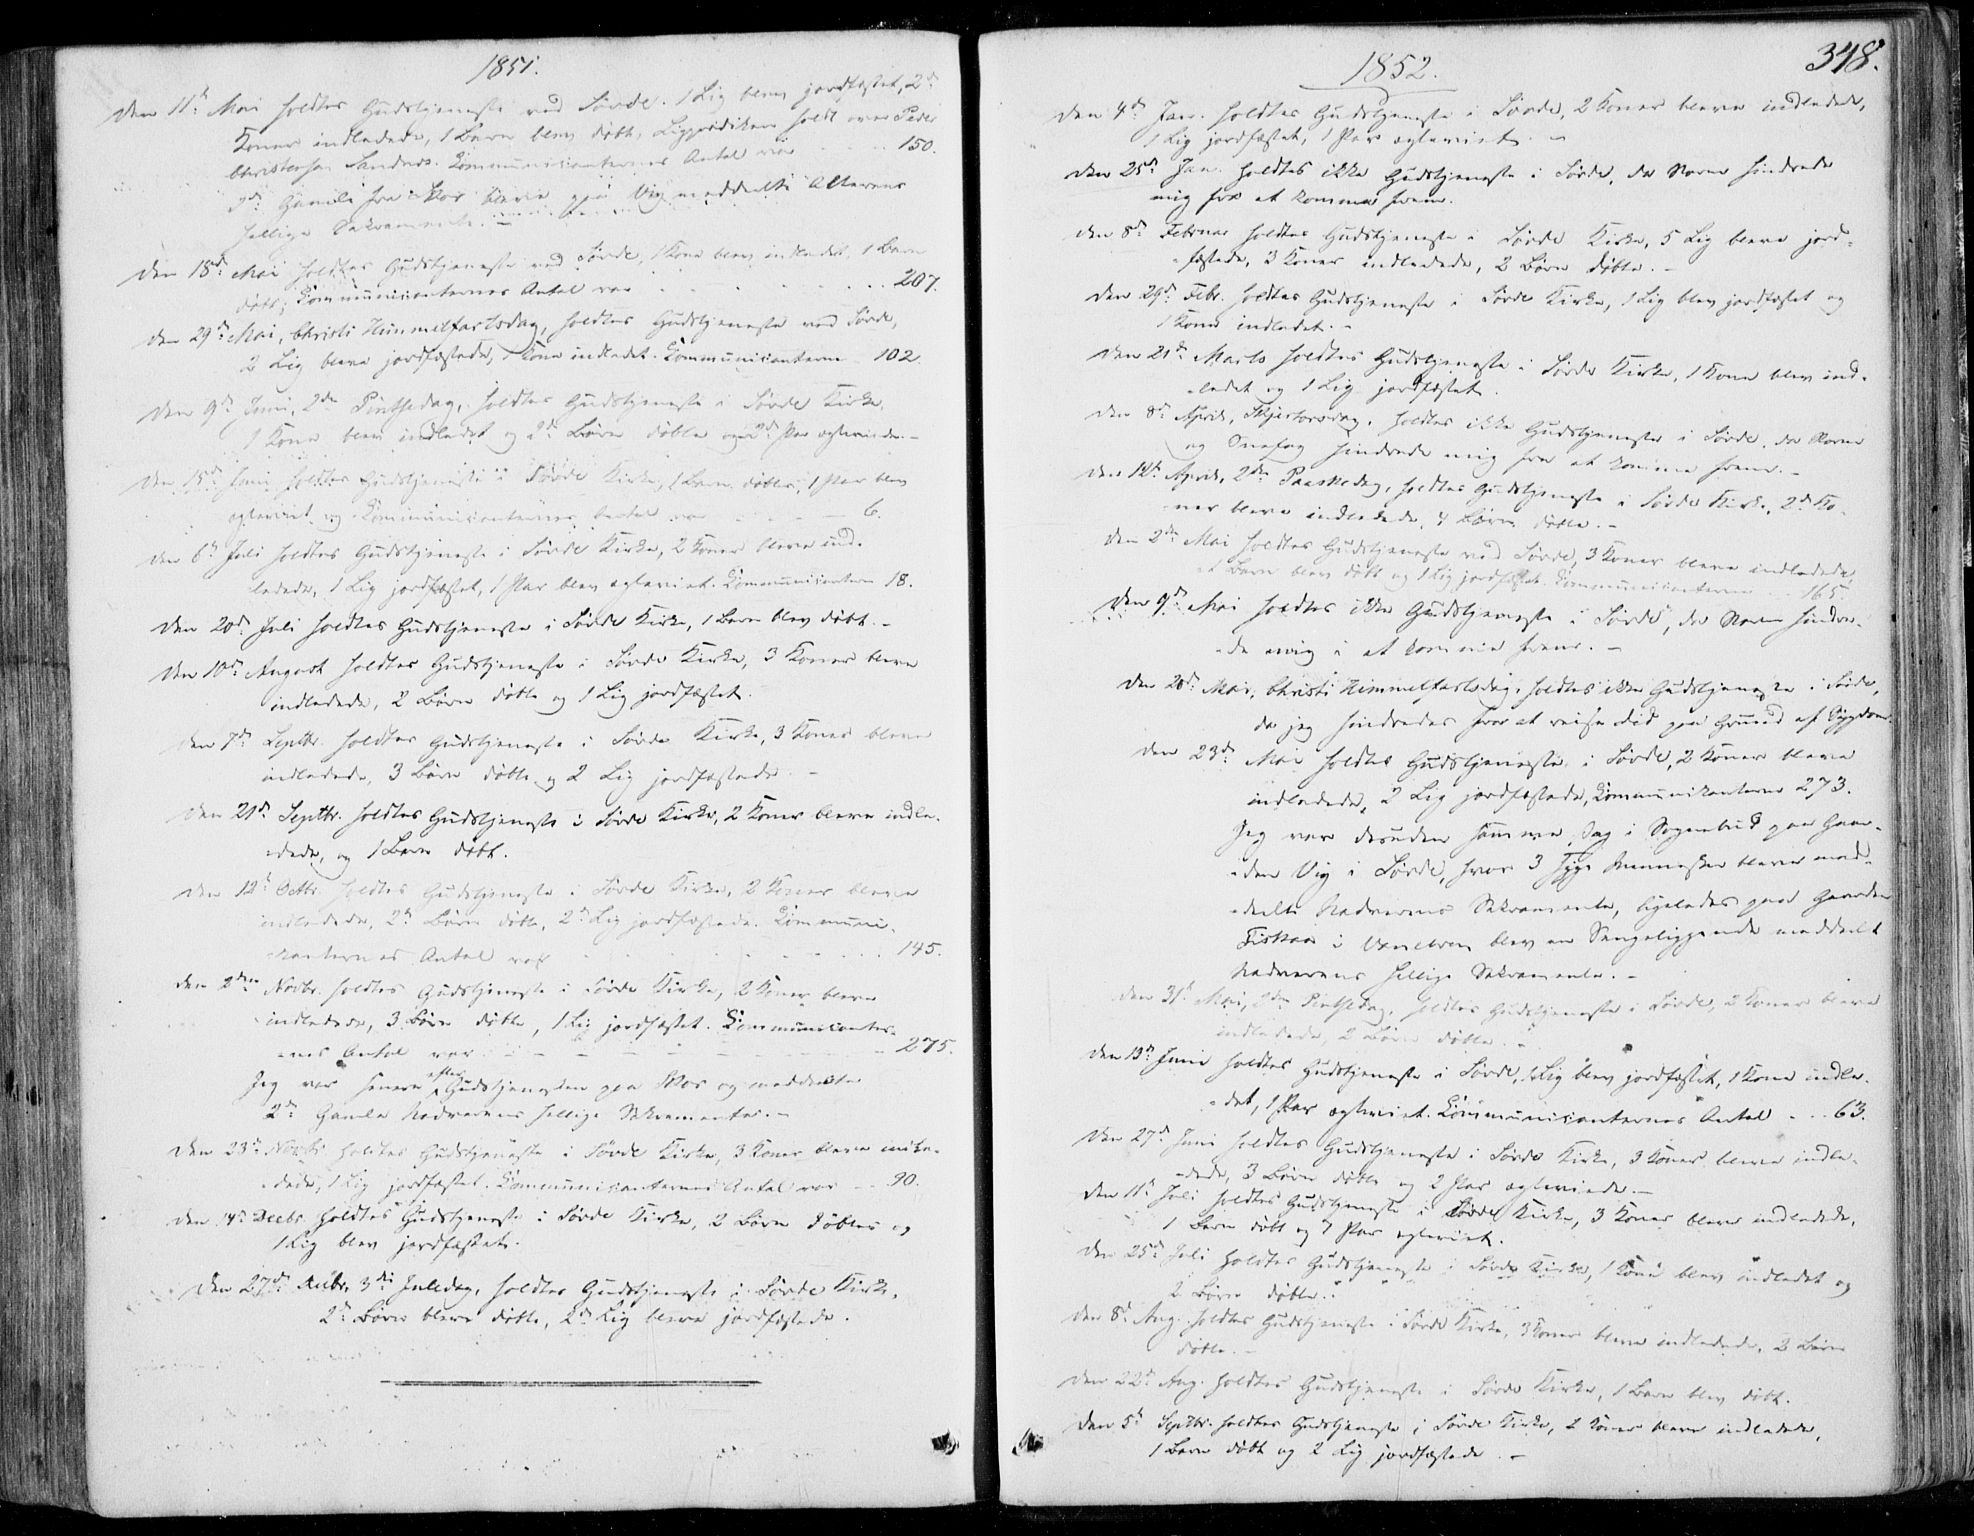 1851.
Den 11te Mai holdtes Gudstjeneste ved Sövde. 1 Lig blev jordfæstet, 2de
Koner indledede, 1 Barn blev döbt, Ligprædiken holdt over Peder
Christensen Sandnes. Communicanternes Antal var 150.
2de Gamle fra Skor bleve paa Vig meddelte Alterens
hellige Sakramente. –
Den 18de Mai holdtes Gudstjeneste ved Sövde, 1 Kone blev indledet, 1 Barn
döbt; Communicanternes Antal var 207.
Den 29de Mai, Christi Himmelfartsdag, holdtes Gudstjeneste ved Sövde,
2 Lig bleve jordfæstede, 1 Kone indledet. Communicanterne 102.
Den 9de Juni, 2den Pintsedag, holdtes Gudstjeneste i Sövde Kirke,
1 Kone blev indledet og 2de Börn döbte og 2de Par ægteviede. –
Den 15de Juni holdtes Gudstjeneste i Sövde Kirke, 1 Barn döbtes, 1 Par blev
ægteviet og Communicanternes Antal var 6.
Den 6te Juli holdtes Gudstjeneste i Sövde Kirke, 2 Koner bleve ind-
ledede, 1 Lig jordfæstet, 1 Par blev ægteviet. Communicantern 18.
Den 20de Juli holdtes Gudstjeneste i Sövde Kirke, 1 Barn blev döbt. –
Den 10de August holdtes Gudstjeneste i Sövde Kirke, 3 Koner bleve
indledede, 2 Börn döbte og 1 Lig jordfæstet.
Den 7de Septbr. holdtes Gudstjeneste i Sövde Kirke, 3 Koner bleve
indledede, 3 Börn döbte og 2 Lig jordfæstede. –
Den 21de Septbr. holdtes Gudstjeneste i Sövde Kirke, 2 Koner bleve indle-
dede, og 1 Barn döbt.
Den 12te Octbr. holdtes Gudstjeneste i Sövde Kirke, 2 Koner bleve
indledede, 2de Börn döbte, 2de Lig jordfæstede. Communi-
kanternes Antal var 145.
Den 2den Novbr. holdtes Gudstjeneste i Sövde Kirke, 2 Koner bleve
indledede, 3 Börn döbte, 1 Lig jordfæstet. Communicanter-
nes Antal var 275.
Jeg var senere efter Gudstjenesten paa Skor og meddeelte
2de Gamle Nadverens hellige Sakramente. –
Den 23de Novbr. holdtes Gudstjeneste i Sövde Kirke, 3 Koner bleve indle-
dede, 1 Lig jordfæstet. Communicanternes Antal var 90.
Den 14de Decbr. holdtes Gudstjeneste i Sövde Kirke, 2 Börn döbtes og
1 Lig blev jordfæstet.
Den 27de Decbr. 3die Juledag, holdtes Gudstjeneste i Sövde Kirke,
2de Börn bleve döbte, 2de Lig bleve jordfæstede.
348.
1852.
Den 4de Jan. holdtes Gudstjeneste i Sövde, 2 Koner bleve indledede,
1 Lig jordfæstet, 1 Par ægteviet. –
Den 25de Jan. holdtes ikke Gudstjeneste i Sövde, da Storm hindrede
mig fra at komme frem.
Den 8de Februar holdtes Gudstjeneste i Sövde Kirke, 5 Lig bleve jord-
fæstede, 3 Koner indledede, 2 Börn döbte. –
Den 29de Febr. holdtes Gudstjeneste i Sövde Kirke, 1 Lig blev jordfæstet og
1 Kone indledet. –
Den 21de Marts holdtes Gudstjeneste i Sövde Kirke, 1 Kone blev ind-
ledet og 1 Lig jordfæstet.
Den 8de April, Skjertorsdag, holdtes ikke Gudstjeneste i Sövde, da Storm
og Snefog hindrede mig fra at komme frem. –
Den 12te April, 2den Paaskedag, holdtes Gudstjeneste i Sövde Kirke, 2de Ko-
ner bleve indledede, 4 Börn döbte. –
Den 2den Mai holdtes Gudstjeneste ved Sövde, 3 Koner bleve indledede,
et Barn blev döbt og 1 Lig jordfæstet. Communicanterne 165.
Den 9de Mai holdtes ikke Gudstjeneste i Sövde, da Storm hindre-
de mig i at komme frem. –
Den 20de Mai, Christi Himmelfartsdag, holdtes ikke Gudstjeneste i Sövde,
da jeg hindredes fra at reise did paa Grund af Sygdom.
Den 23de Mai holdtes Gudstjeneste i Sövde, 2 Koner bleve
indledede, 2 Lig jordfæstede, Communikanterne 273.
Jeg var desuden samme Dag i Sognebud paa Gaar-
den Vig i Sövde, hvor 3 syge Mennesker bleve med-
deelte Nadverens Sakramente, ligeledes paa Gaarden
Fiskaa i Vanelven blev en Sengeliggende meddeelt
Nadverens hellige Sakramente. –
Den 31te Mai, 2den Pintsedag, holdtes Gudstjeneste i Sövde, 2 Koner bleve
indledede, 2 Börn döbte. –
Den 13de Juni holdtes Gudstjeneste i Sövde, 1 Lig blev jordfæstet, 1 Kone indle-
det, 1 Par ægteviet. Communicanternes Antal 63.
Den 27de Juni holdtes Gudstjeneste i Sövde Kirke, 3 Koner bleve indle-
dede, 3 Börn döbte og 2 Par ægteviede. –
Den 11te Juli holdtes Gudstjeneste i Sövde Kirke, 3 Koner bleve indledede,
1 Barn döbt og 1 Par ægteviet.
Den 25de Juli holdtes Gudstjeneste i Sövde Kirke, 1 Kone blev indledet og
2 Börn döbte.
Den 8de Aug. holdtes Gudstjeneste i Sövde Kirke, 3 Koner bleve indledede, 2 Börn
döbte. –
Den 22de Aug. holdtes Gudstjeneste i Sövde Kirke, 1 Barn blev döbt.
Den 5te Septbr. holdtes Gudstjeneste i Sövde Kirke, 2 Koner bleve indledede,
1 Barn döbt og 2 Lig jordfæstede. –